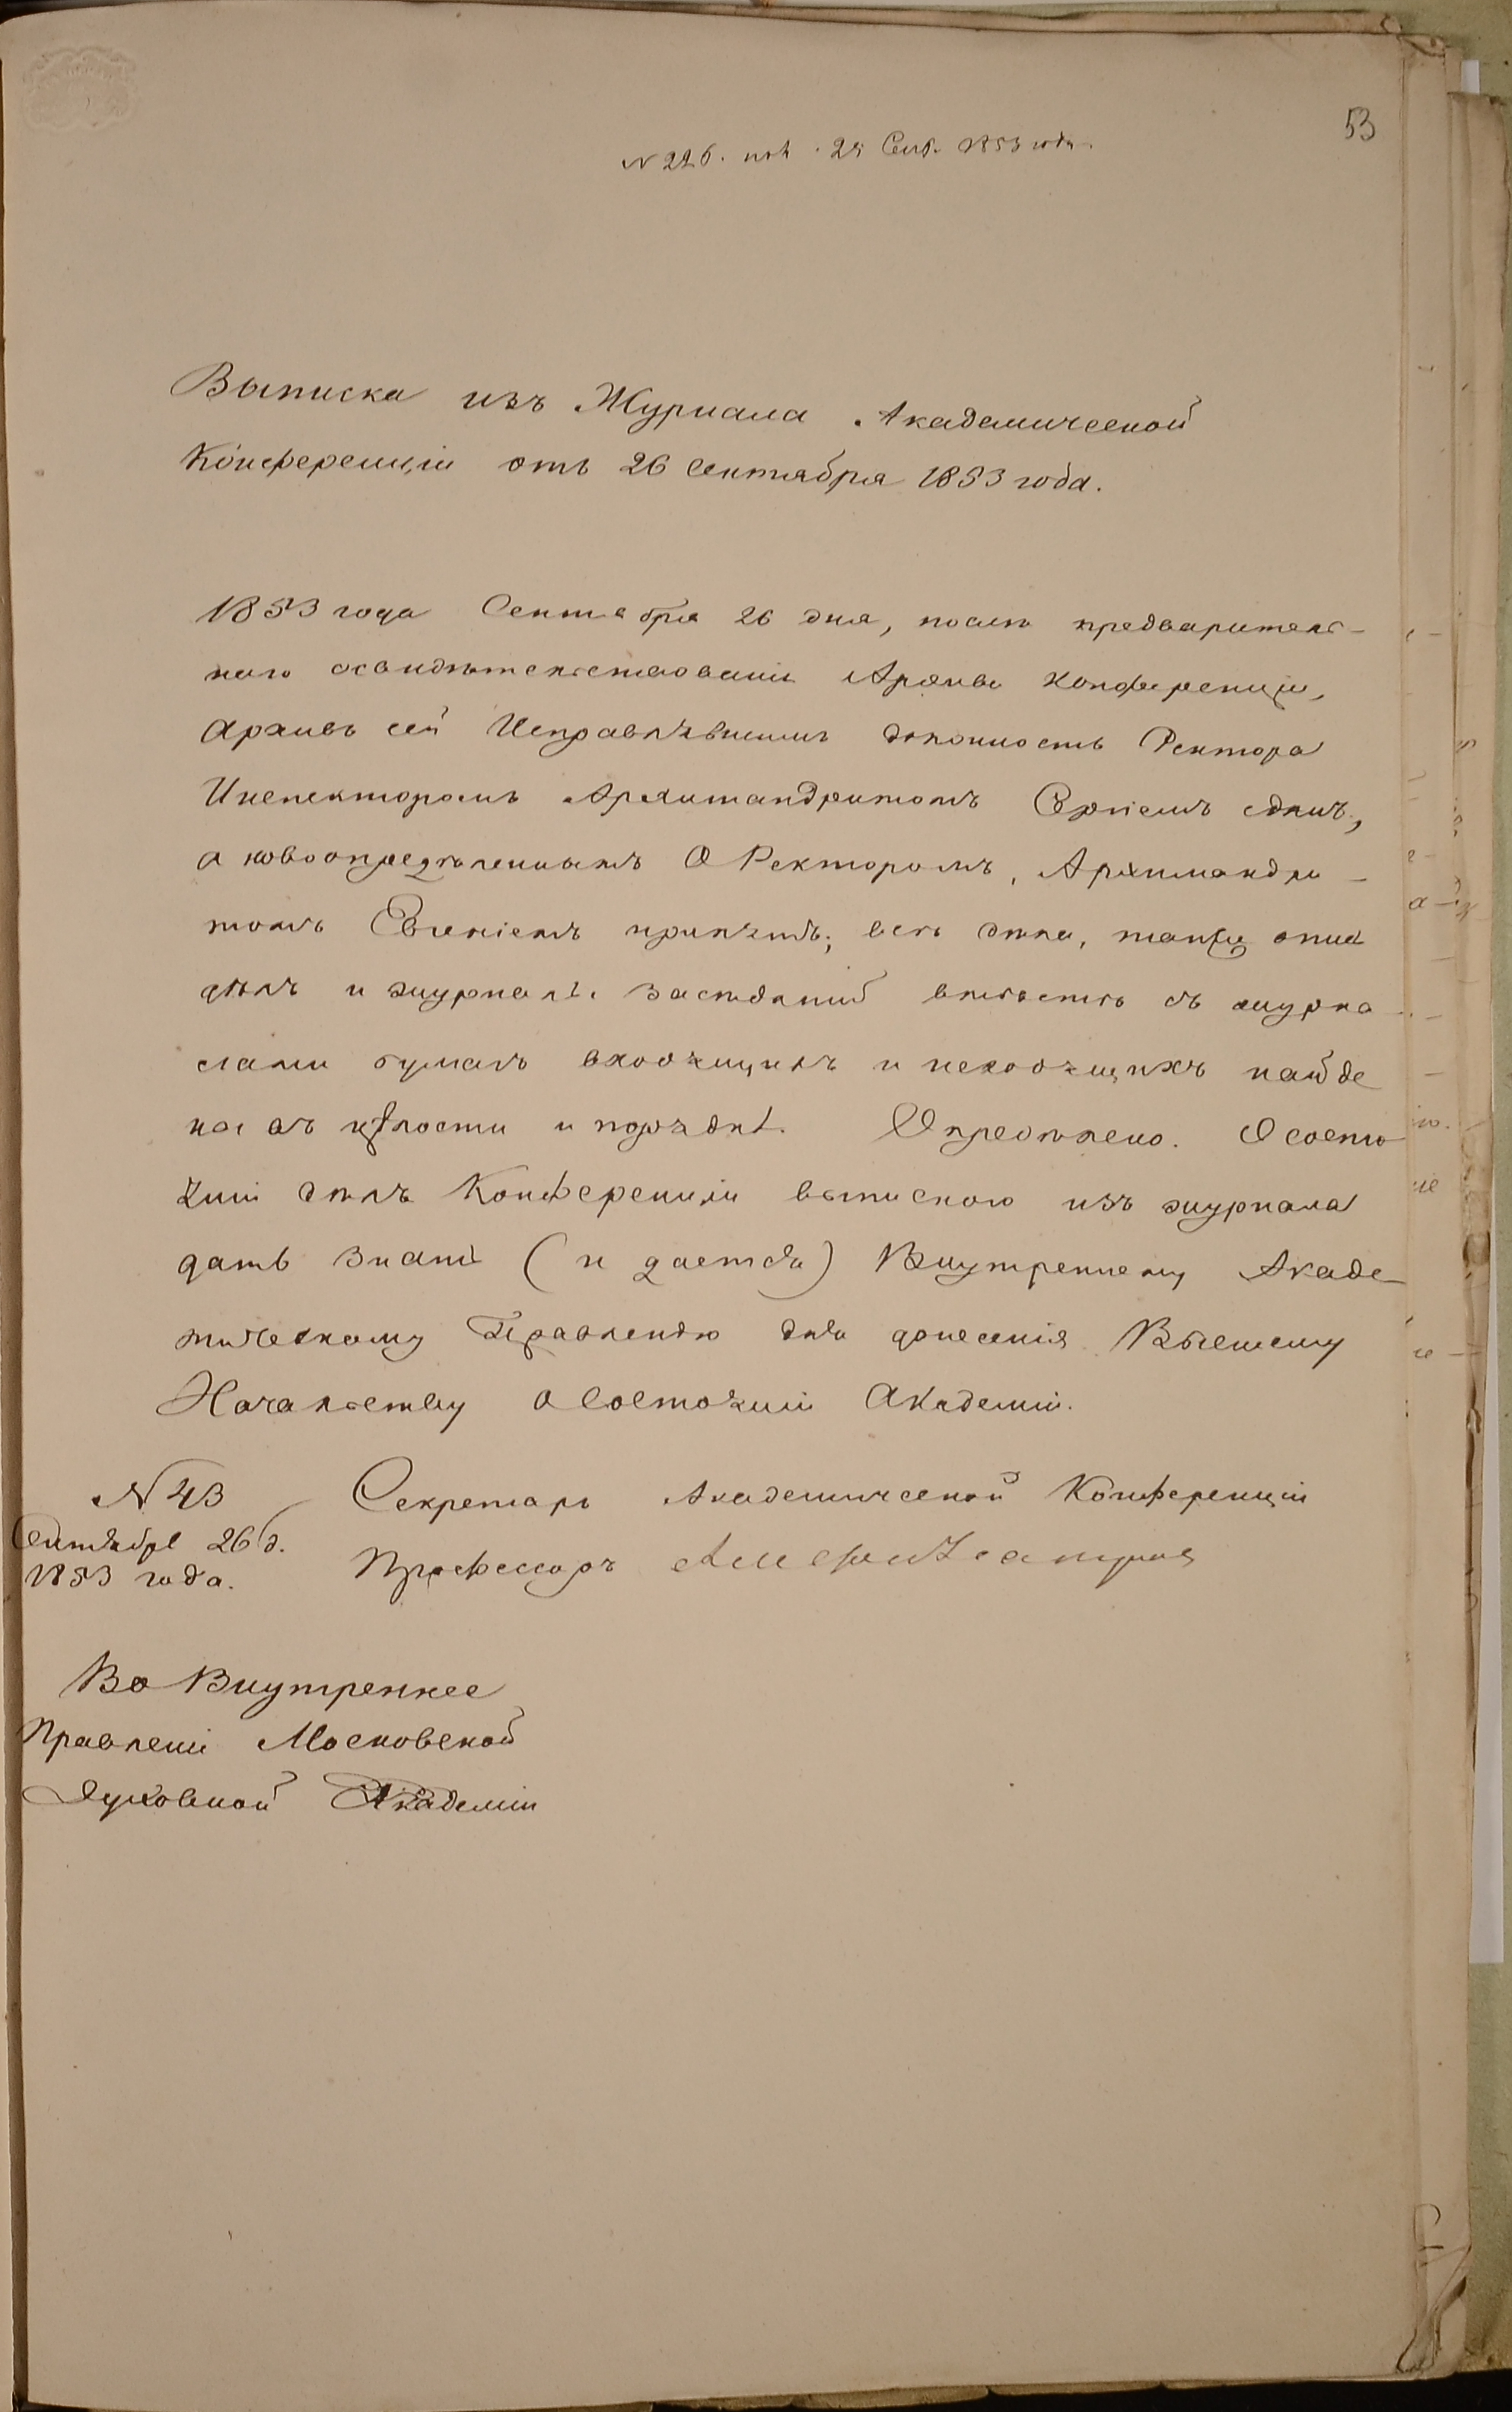 53
N 226. пол. 29 Сент. 1853 года.
Выписка изъ Журнала Академической
Конференціи отъ 26 Сентября 1853 года.
1853 года Сентября 26 дня, послѣ предваритель-
наго освидѣтельствованія Архива Конференціи,
Архивъ сей Исправлявшимъ должность Ректора
Инспекторомъ Архимандритомъ Сергіемъ сданъ,
а новоопредѣленнымъ О Ректоромъ, Архиманд­ри-
томъ Евгеніемъ принятъ; всѣ дѣла, также описи
дѣлъ и журналы засѣданій вмѣстѣ съ журна
лами бумагъ входящихъ и исходящихъ найде
ны въ цѣлости и порядкѣ. Опредѣлено. О состо
яніи дѣлъ Конференціи выпискою изъ журнала
дать знать (и дается) Внутреннему Акаде
мическому Правленію для донесенія Высшему
Начальству о состояніи Академіи.
N 43
Сентября 26 д.
1853 года.
Секретарь Академической Конференціи
Профессоръ
Во Внутреннее
Правленіе Московской
Духовной Академіи